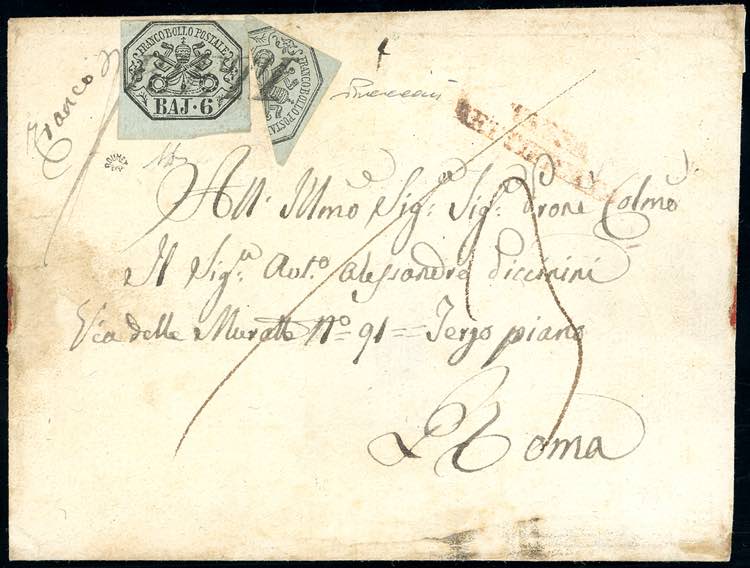 FRANCO BOLLO POSTALE
BAJ·6
FRANCO BOLLO POSTALE
Franco
All' Illmo Sig: Sig: Prone Colmo
Il Sigr Avto Alessandro Piccinini
Via delle Muratte No 91 = Terzo piano
Roma